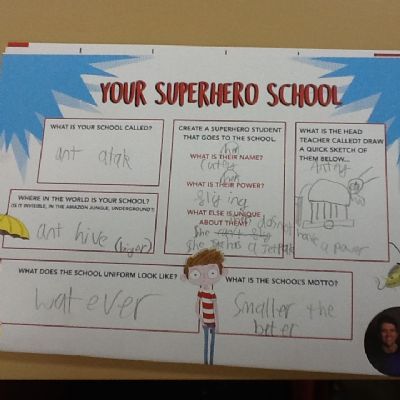 YOUR SUPERHERO SCHOOL
WHAT IS YOUR SCHOOL CALLED?
ant atak
WHERE IN THE WORLD IS YOUR SCHOOL?
(IS IT INVISIBLE, IN THE AMAZON JUNGLE, UNDERGROUND?)
ant hive (biger)
CREATE A SUPERHERO STUDENT
THAT GOES TO THE SCHOOL.
WHAT IS THEIR NAME?
WHAT IS THEIR POWER?
flying
WHAT ELSE IS UNIQUE
ABOUT THEM?
She dos not have
She has a Jetpack a power
WHAT IS THE HEAD
TEACHER CALLED? DRAW
A QUICK SKETCH OF
THEM BELOW...
Antey
WHAT DOES THE SCHOOL UNIFORM LOOK LIKE?
watever
WHAT IS THE SCHOOL'S MOTTO?
Smaller the
beter